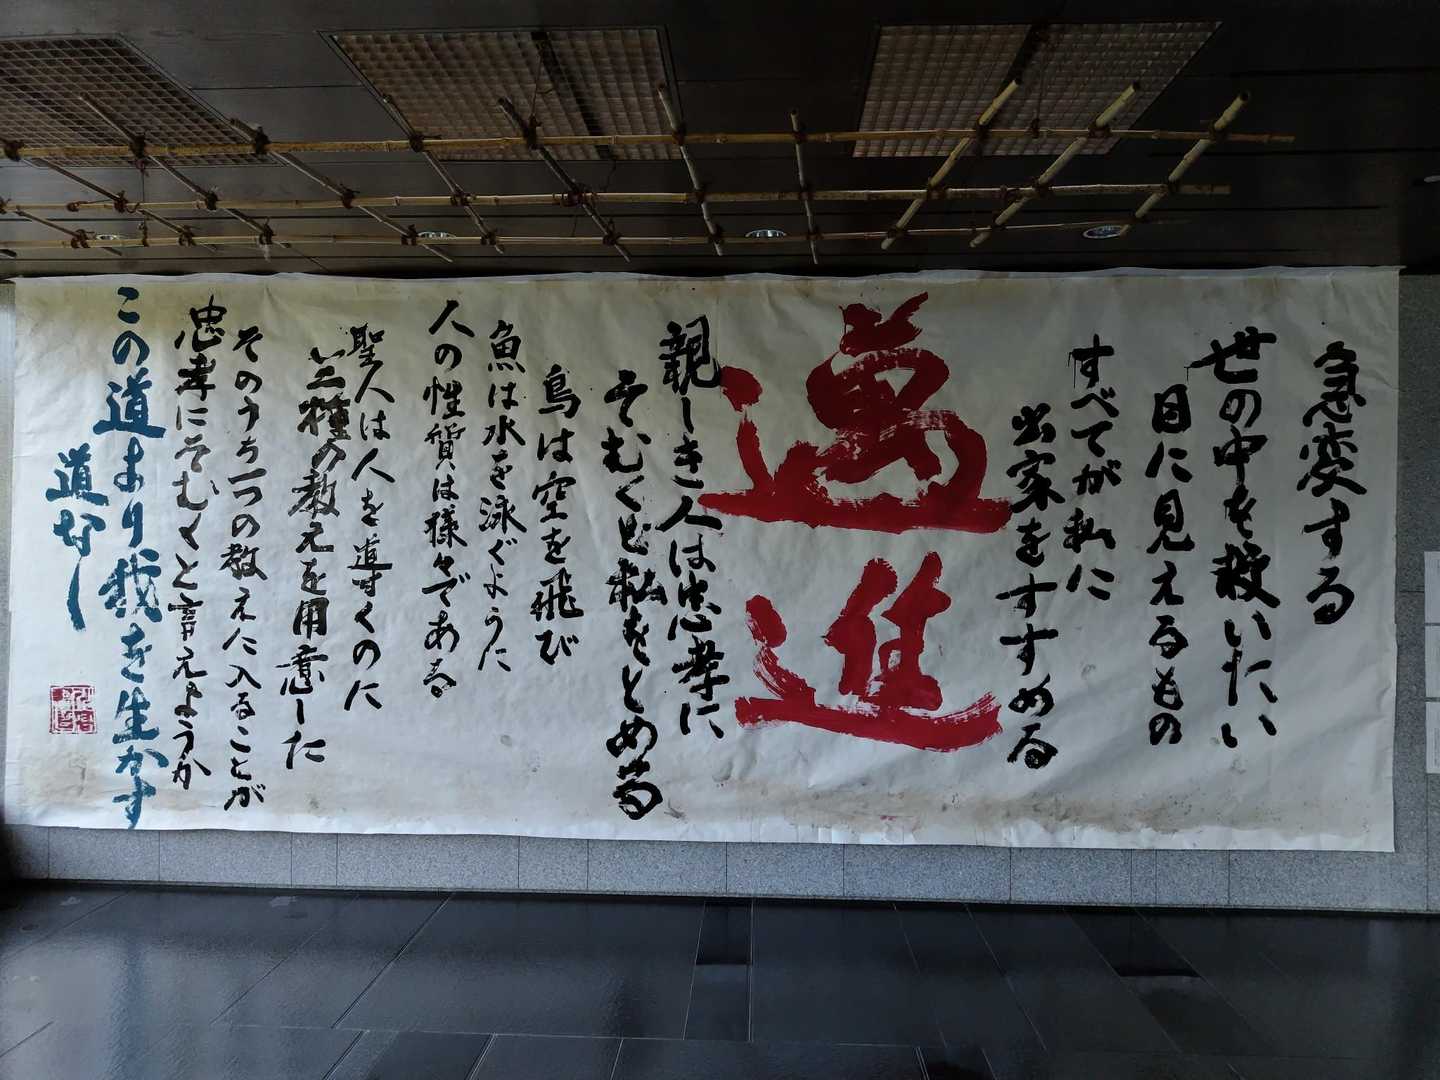 急変する
世の中を救いたい
目に見えるもの
すべてが私に
出家をすすめる
邁進
親しき人は忠孝に
そむくと私をとめる
鳥は空を飛び
魚は水を泳ぐように
人の性質は様々である
聖人は人を導くのに
三種の教えを用意した
そのうち一つの教えに入ることが
忠孝にそむくと言えようか
この道より我を生かす
道なし